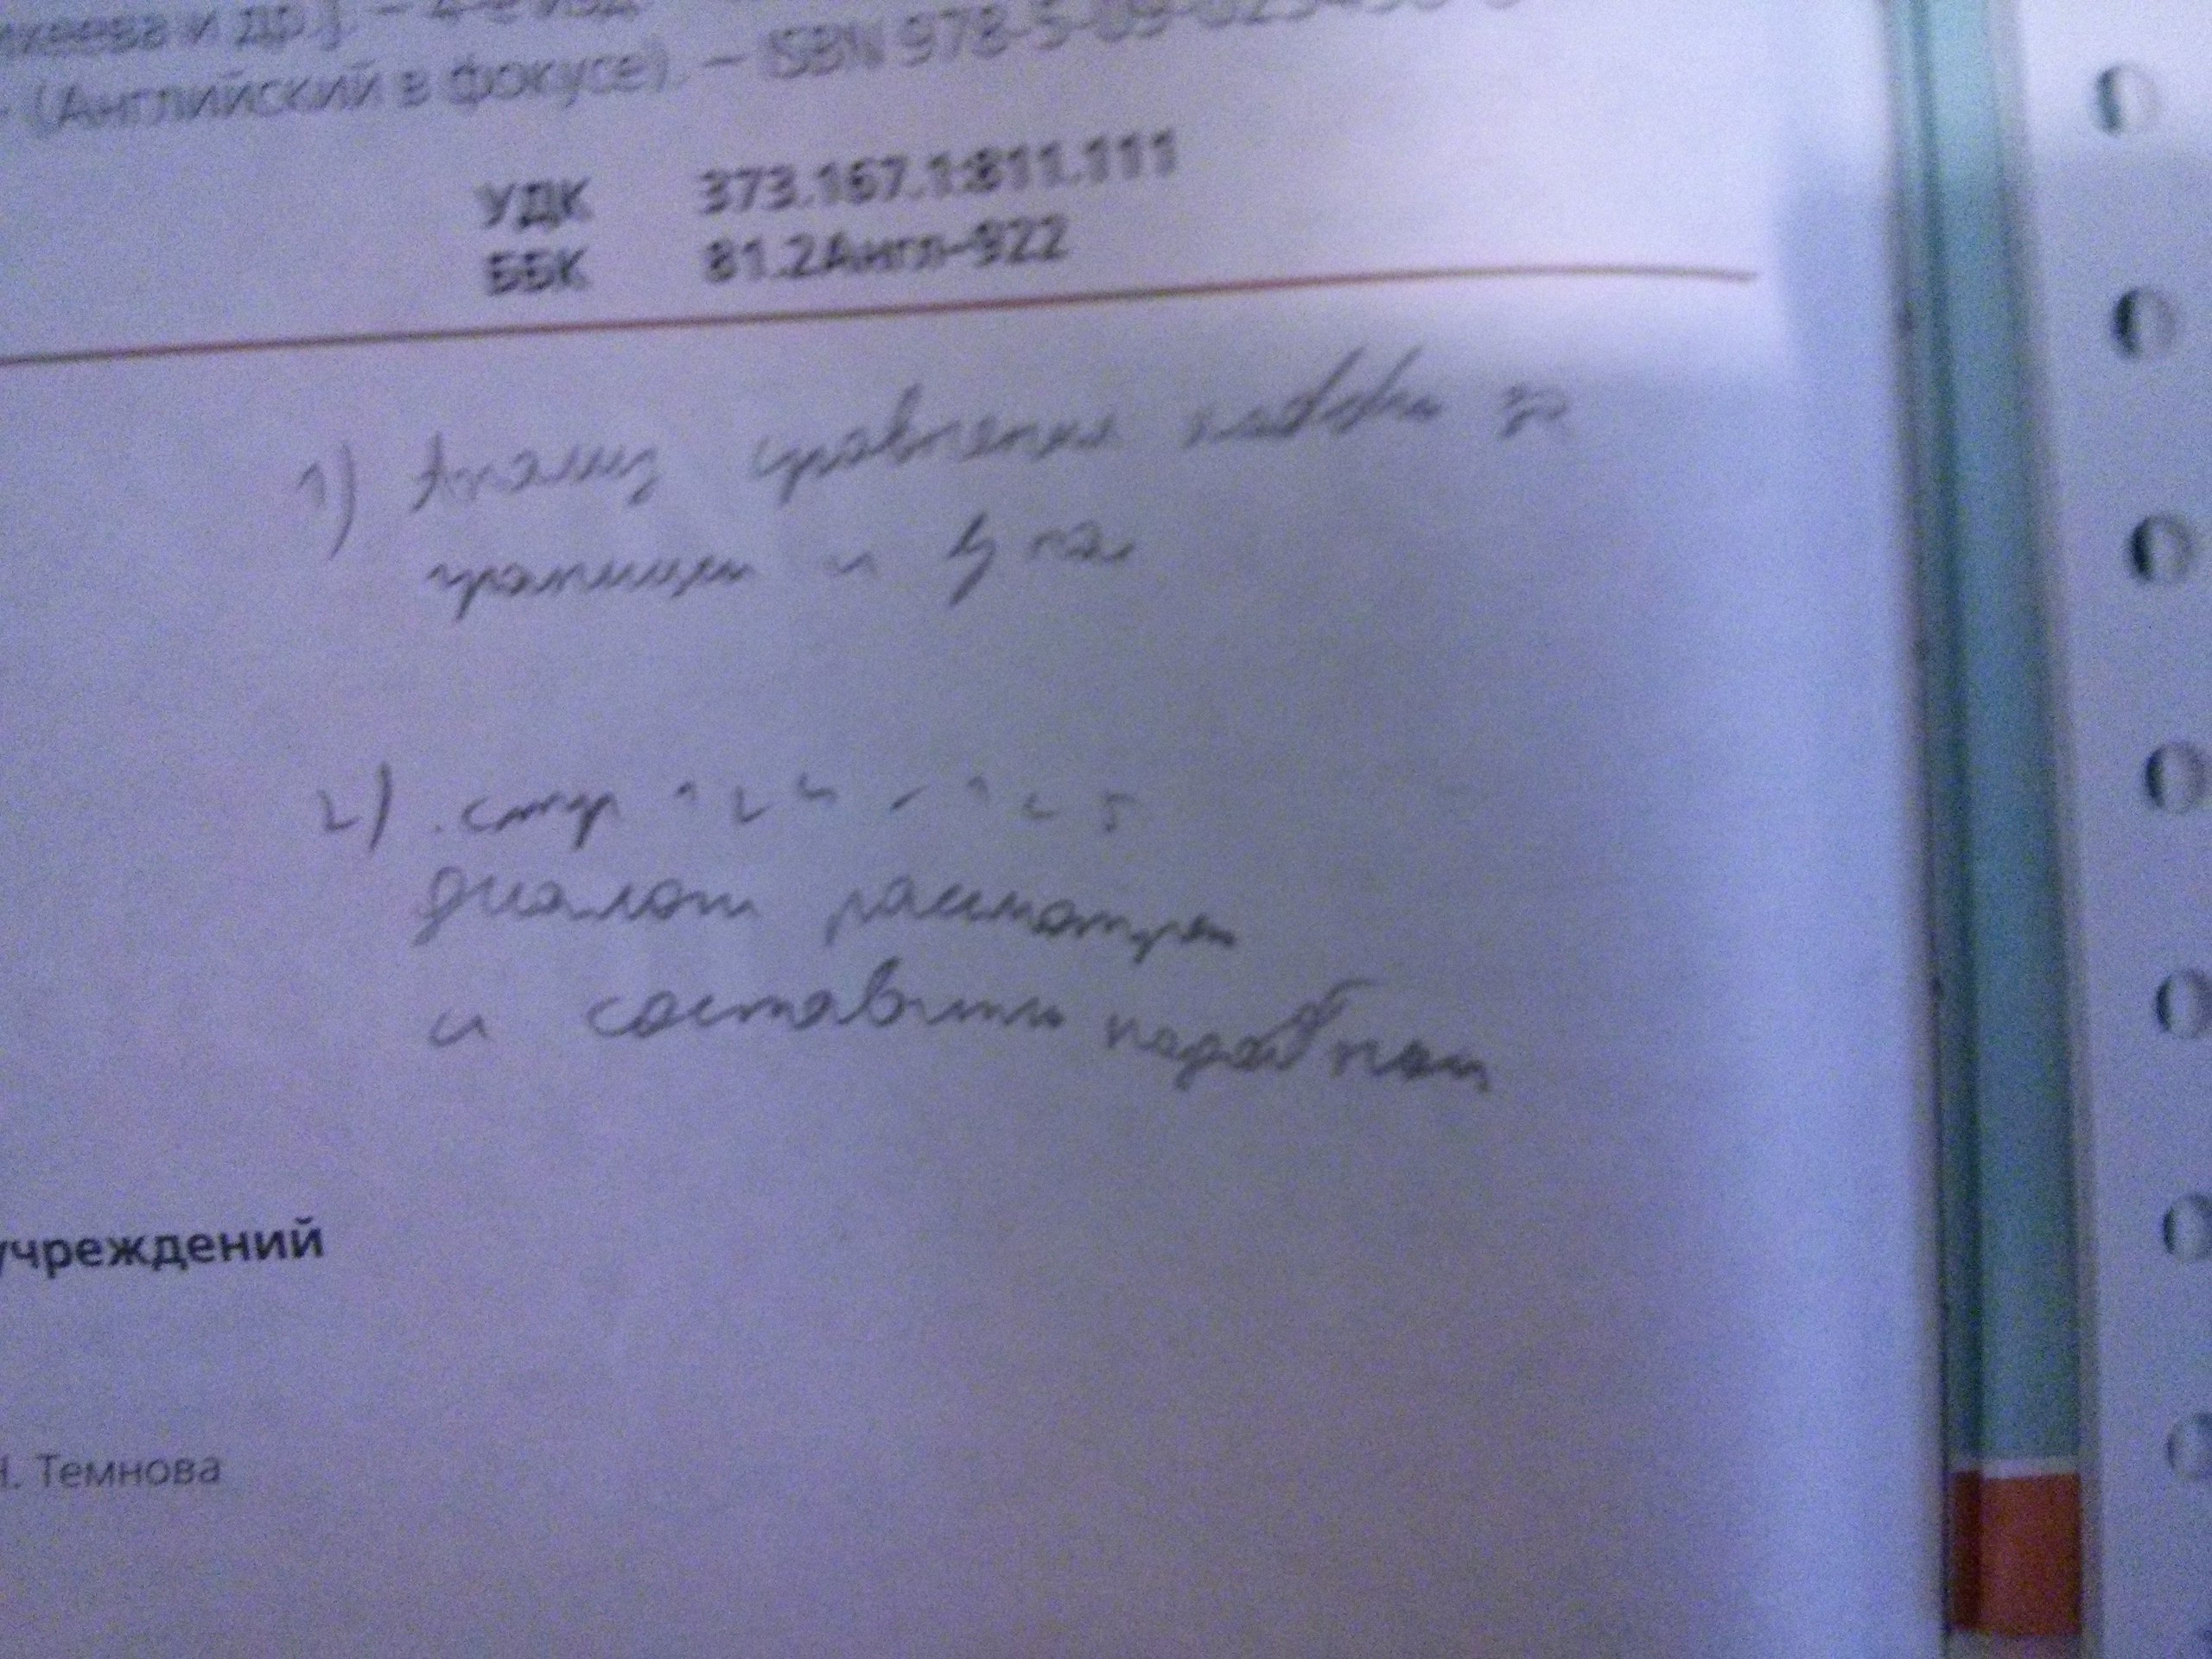 и др.]. – 4-е изд
(Английский в фокусе). – ISBN 978-5-09-
УДК 373.167.1:811.111
ББК 81.2Англ-922
1) Анализ сравнения за
границей и у нас
2) стр 124-125
диалоги рассмотреть
и составить подобный
учреждений
Н. Темнова